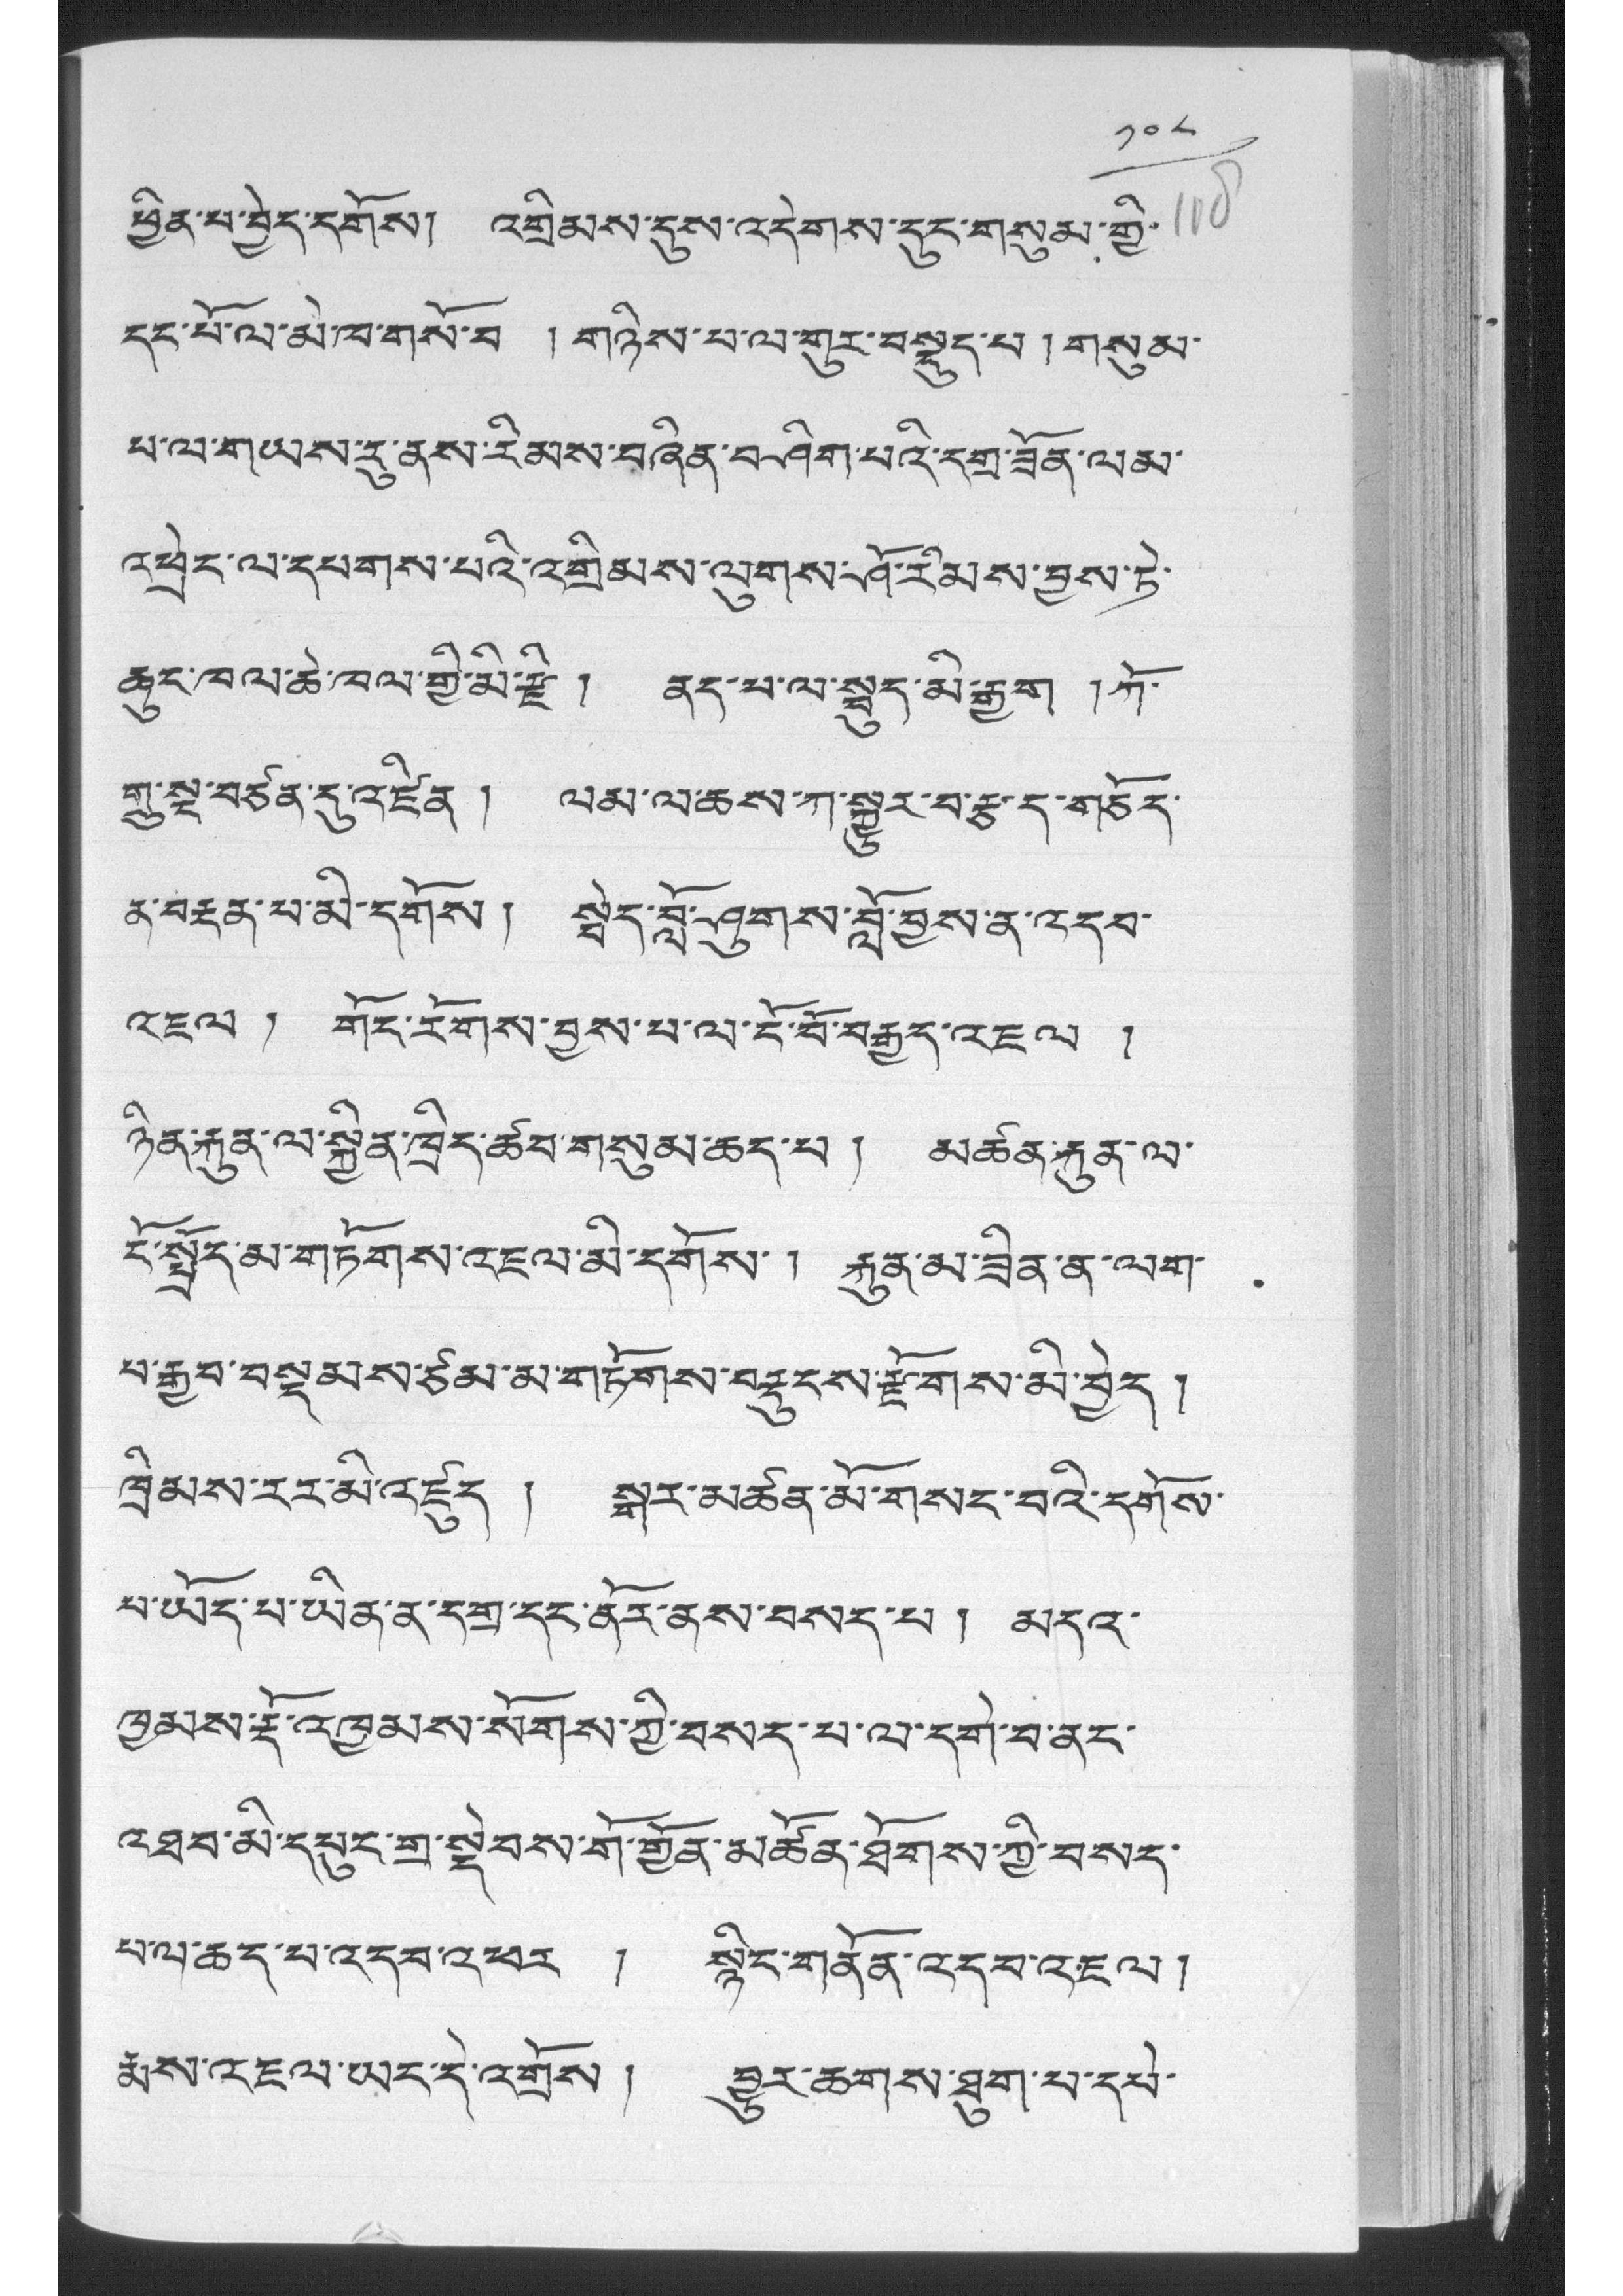 ༡༠༨
118
ཕྱིན་པ་བྱེད་དགོས། འགྲིམས་དུས་འདེགས་དུང་གསུམ་གྱི་
དང་པོ་ལ་མེ་ཁ་གསོ་བ ། གཉིས་པ་ལ་གུར་བསྡུད་པ། གསུམ་
པ་ལ་གཡས་རུ་ནས་རིམས་བཞིན་བཤིག་པའི་དགྲ་ཟོན་ལམ་
འཕྲེང་ལ་དཔགས་པའི་འགྲིམས་ལུགས་ཤོ་རིམས་བྱས་ཏེ་
ཆུང་ཁལ་ཆེ་ཁལ་གྱི་མི་རྫི། ནད་པ་ལ་སྦུད་མི་རྒྱག །ཀོ་
གྲུ་སྔ་བཙན་དུ་འཛིན། ལམ་ལ་ཆས་ཀ་སྐྱུར་བ་རྩྭ་ད་གཅོད་
ན་བརྡན་པ་མི་དགོས། སྟེད་བློ་ཤུགས་བློ་བྱས་ན་འདབ་
འཇལ། གོད་རོགས་བྱས་པ་ལ་ངོ་བོ་བརྒྱད་འཇལ །
ཉིན་རྐུན་ལ་སྐྱིན་ཁྲིད་ཚབ་གསུམ་ཆད་པ། མཚན་རྐུན་ལ་
ངོ་སྤྲོད་མ་གཏོགས་འཇལ་མི་དགོས། རྐུན་མ་ཟིན་ན་ལག་
པ་རྒྱབ་བསྡམས་ཙམ་མ་གཏོགས་བརྡུངས་རྫོགས་མི་བྱེད།
ཁྲིམས་རར་མི་འཛུད། སྒར་མཚན་མོ་གསང་བའི་དགོས་
པ་ཡོད་པ་ཡིན་ན་དགྲ་དང་ནོར་ནས་བསད་པ། མདའ་
ཁྱམས་རྡོ་འཁྱམས་སོགས་ཀྱི་བསད་པ་ལ་དགེ་བ་ནང་
འཐབ་མི་དཔུང་གྲ་སྡེབས་གོ་གྱོན་མཚོན་ཐོགས་ཀྱི་བསད་
པ་ལ་ཆད་པ་འདབ་འཕར ། སྙིང་གནོན་འདབ་འཇལ།
རྨས་འཇལ་ཡང་དེ་འགྲོས། བྱུར་ཆགས་ཐུག་པ་དཔེ་